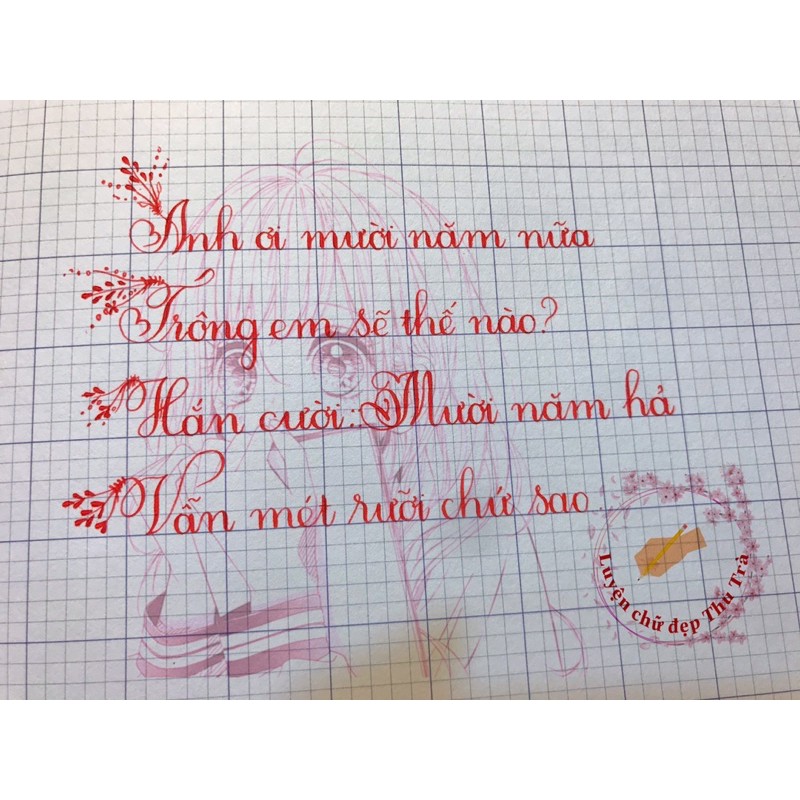 Anh ơi mười năm nữa
Trông em sẽ thế nào?
Hắn cười: Mười năm hả
Vẫn mét rưỡi chứ sao.
Luyện chữ đẹp Thu Trà